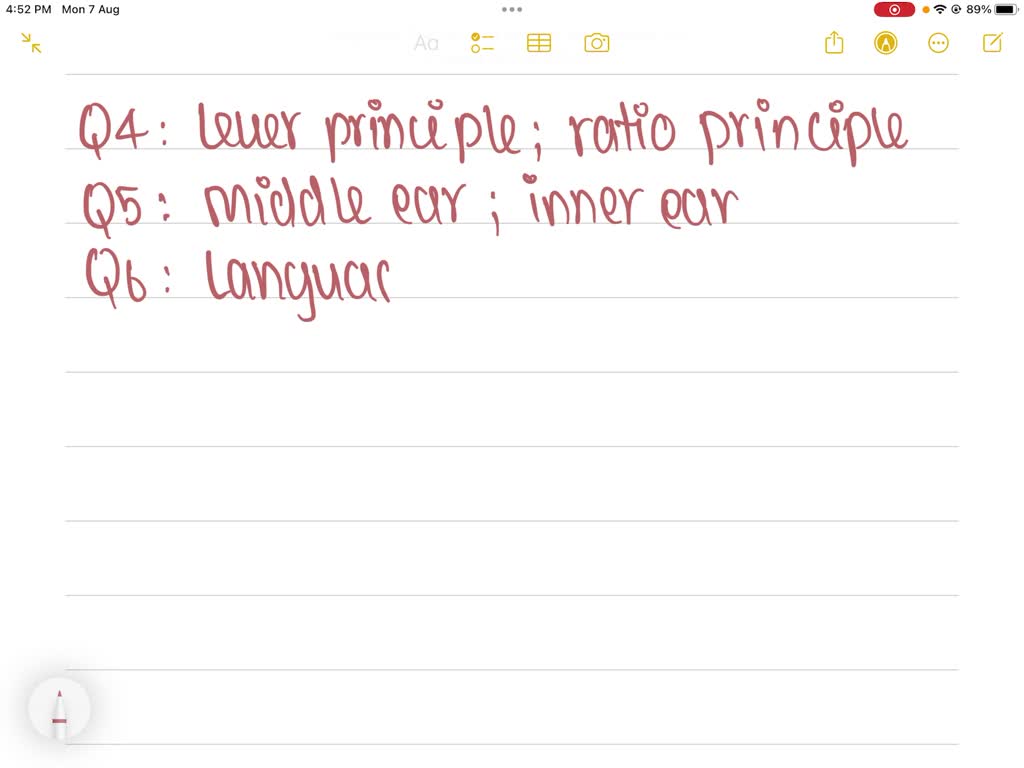 4:52 PM Mon 7 Aug 89%
Aa
Q4: lever principle; ratio principle
Q5: middle ear; inner ear
Q6: Languag